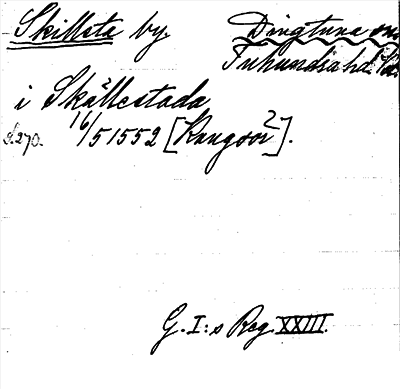 Skillsta by. Dingtuna sn.
Tuhundra hd.
i Skällestada
s. 270. 16/5 1552 [Kungsör?].
G. I:s Reg. XXIII.